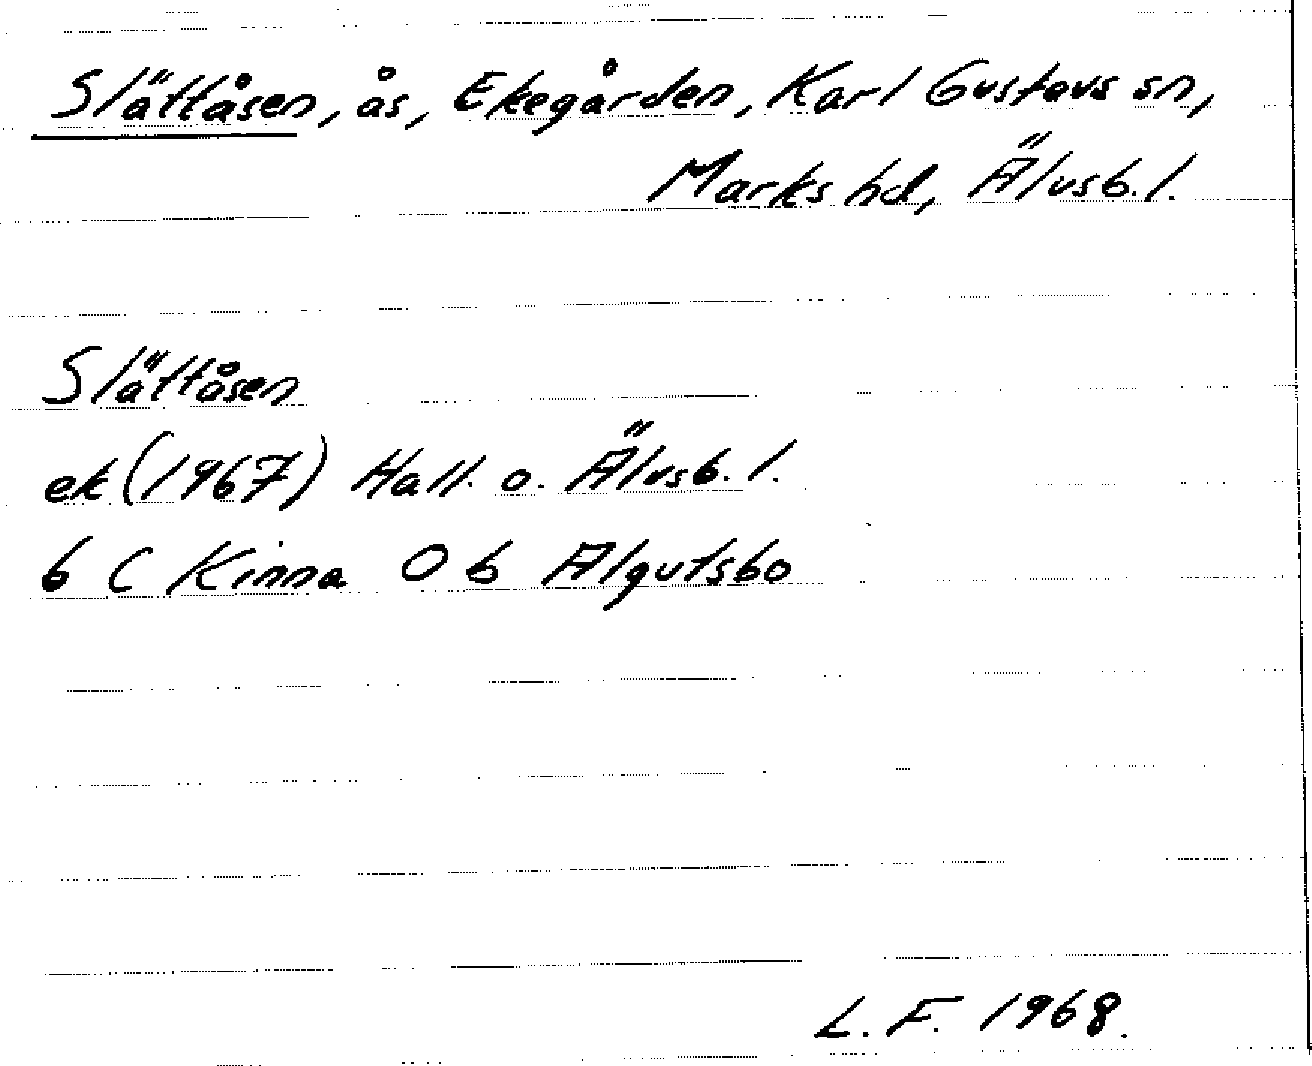 Slättåsen, ås, Ekegården, Karl Gustavs sn,
Marks hd, Älvsb. l.
Slättåsen
ek (1967) Hall. o. Älvsb. l.
6 C Kinna 0 b Algutsbo
L. F. 1968.